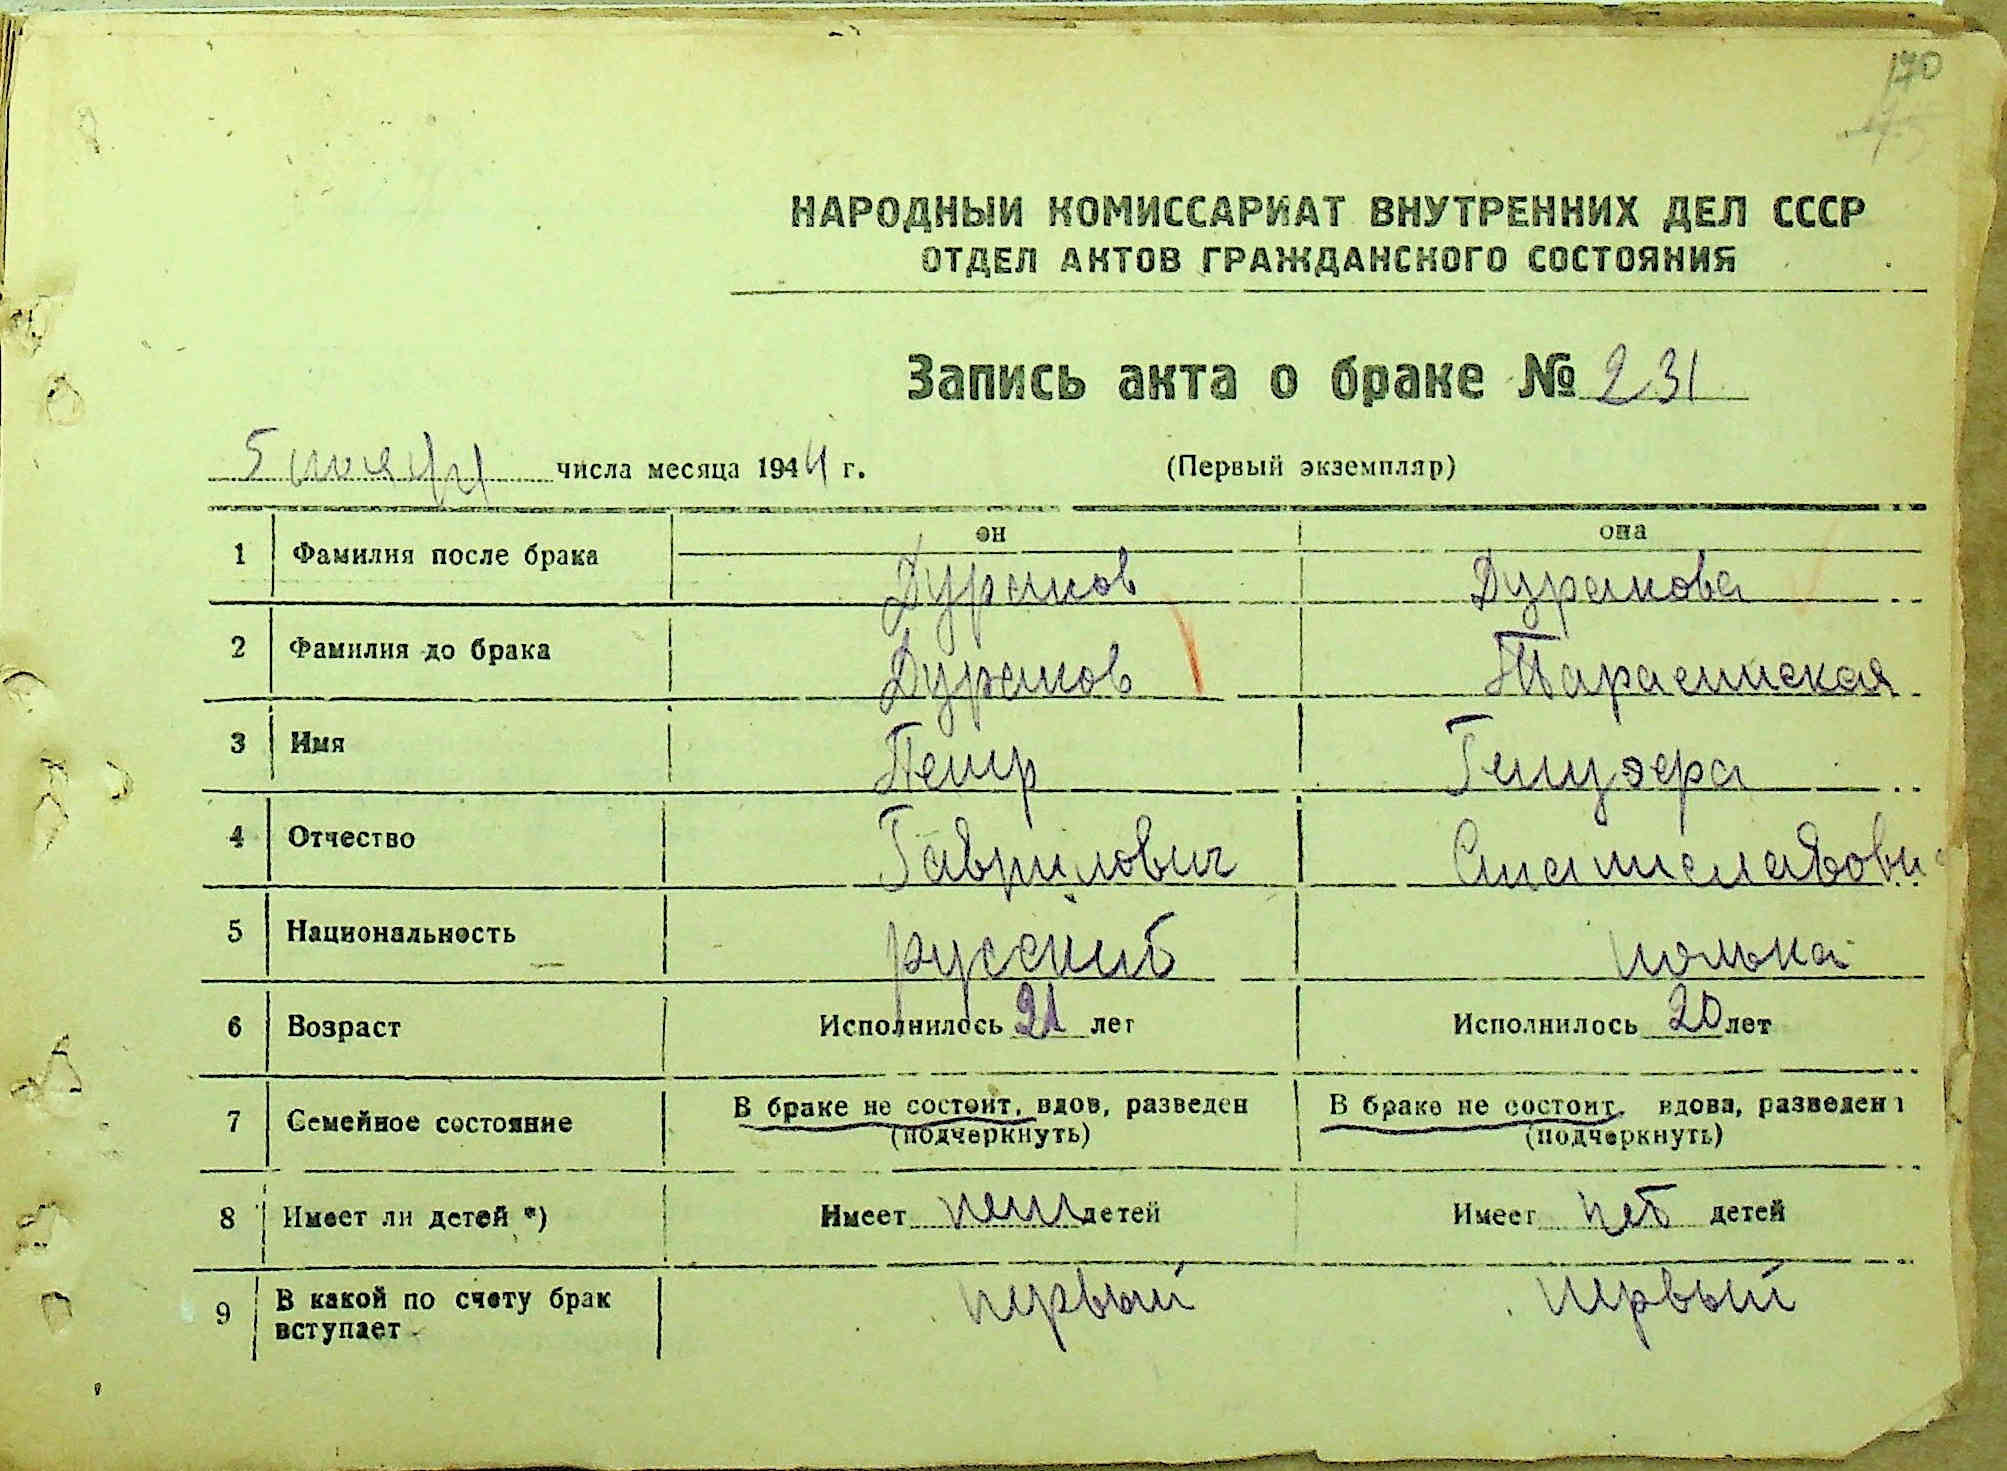 170
НАРОДНЫЙ КОМИССАРИАТ ВНУТРЕННИХ ДЕЛ СССР
ОТДЕЛ АКТОВ ГРАЖДАНСКОГО СОСТОЯНИЯ
Запись акта о браке № 231
5 числа месяца 1944 г. (Первый экземпляр)
он она
1 Фамилия после брака Дураков Дуракова
2 Фамилия до брака Дураков
3 Имя Петр
4 Отчество Гаврилович Станиславовн
5 Национальность русский полька
6 Возраст Исполнилось 21 лет Исполнилось 20 лет
7 Семейное состояние В браке не состоит, вдов, разведен В браке не состоит, вдова, разведен
(подчеркнуть) (подчеркнуть)
8 Имеет ли детей *) Имеет нет детей Имеет нет детей
9 В какой по счету брак вступает первый первый